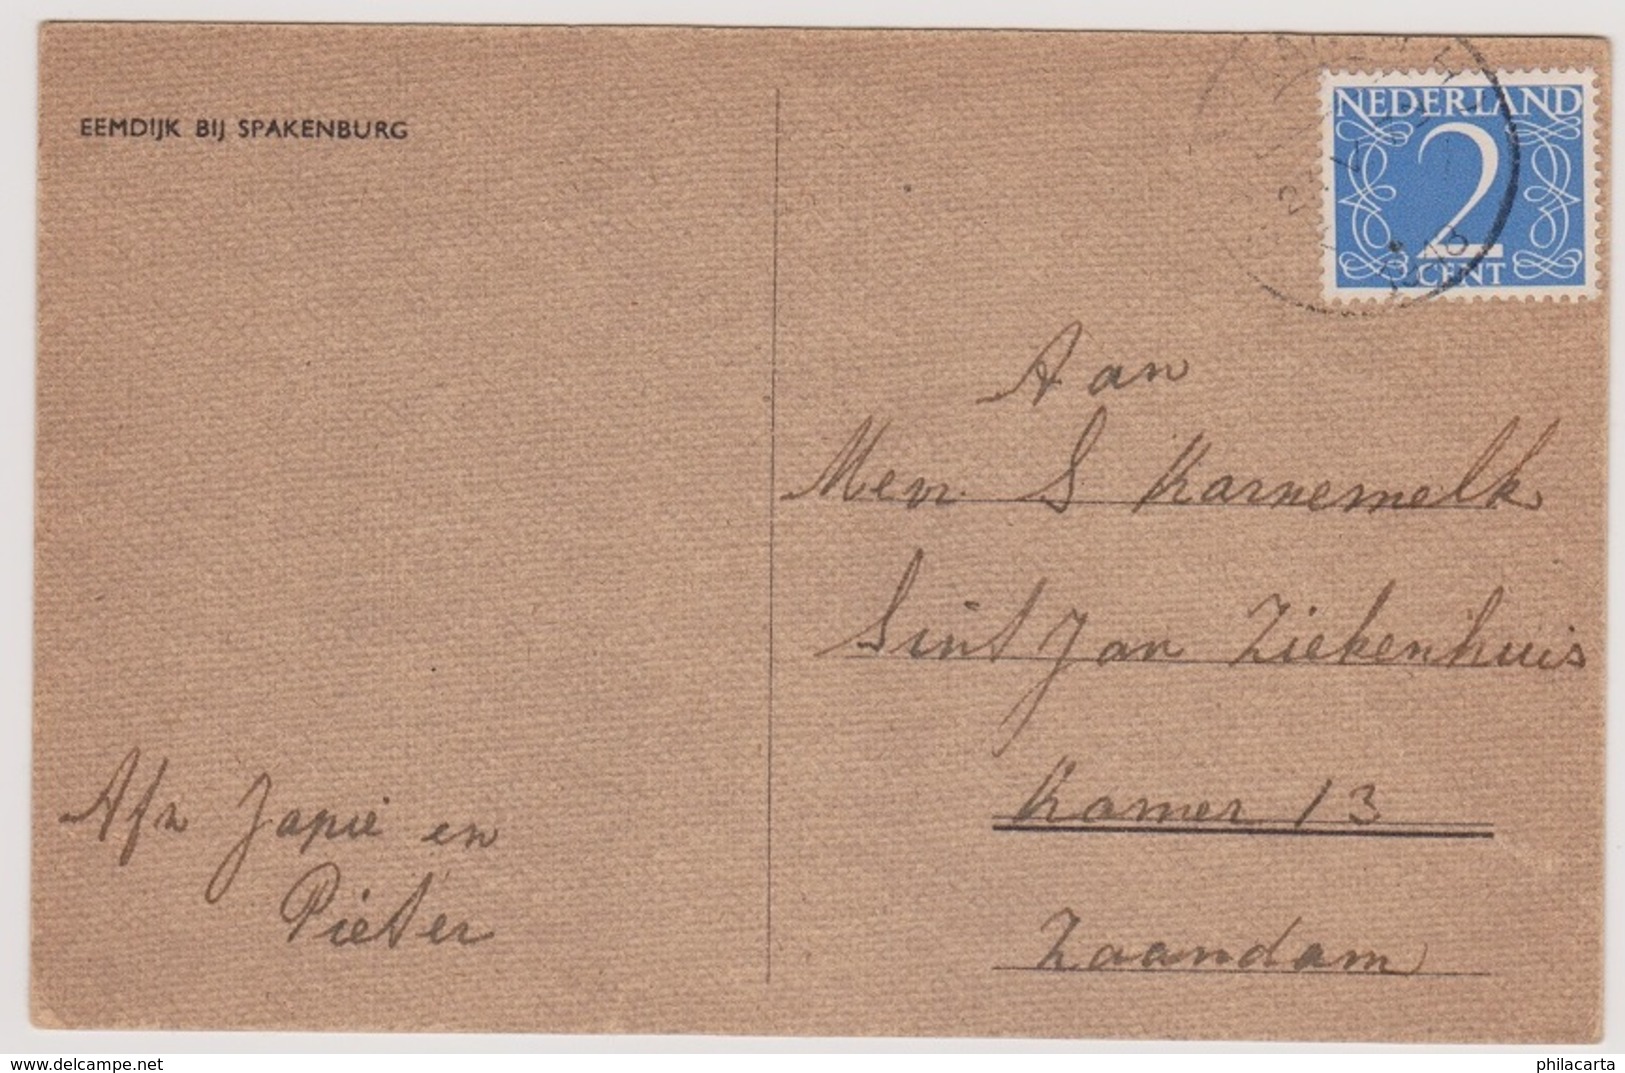 EEMDIJK BIJ SPAKENBURG
NEDERLAND
2
CENT
Aan
Mevr. S Karnemelk
Sint Jan Ziekenhuis
Kamer 13
Zaandam
Afz Japie en
Pieter
www.delcampe.net
philacarta